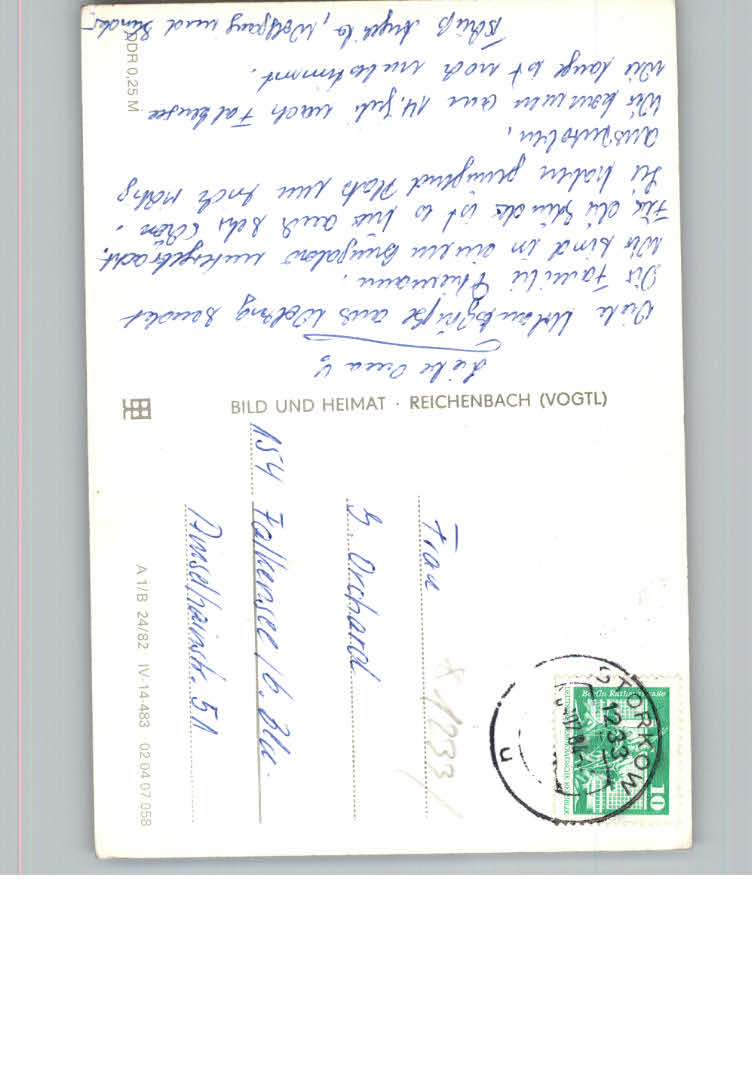 Liebe Oma
Viele Urlaubsgrüße aus Wolzig sendet
Dir Familie Thiemann.
Wir sind in einem Bungalow untergebracht.
Für die Kinder ist es hier auch sehr schön.
Sie haben genügend Platz um sich richtig
auszutoben.
Wir kommen am 14. Juli nach Falkensee
wie lange ist noch unbestimmt.
Tschüß Angelika, Wolfgang und Kinder
DDR 0,25 M
BILD UND HEIMAT · REICHENBACH (VOGTL)
Frau
G. Orchard
154 Falkensee / b. Bln.
Amselhainstr. 5A
A 1/B 24/82 IV-14-483 02 04 07 058
STORKOW
1233
u
Berlin Rathausstraße
10